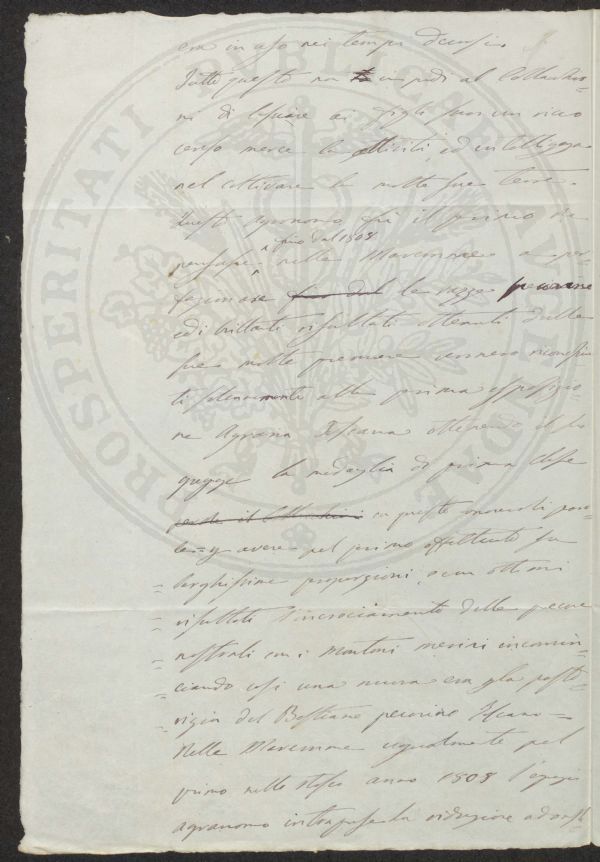 era in uso nei tempi decorsi.
Tutto questo non impedì al Collacchio-
ni di lasciare ai figli suoi un ricco
censo mercè la attività, ed intelligenza
nel coltivare le molte sue terre.
Quest'Agronomo fu il primo che
pensasse fino dal 1808 nelle Maremme a per-
fezionare fino dal le razze pecorine
ed i brillanti risultati ottenuti dalle
sue molte premure vennero riconosciu-
ti solennemente alla prima esposizio
ne Agraria Toscana ottenendo
la medaglia di prima classe
con queste onorevoli paro-
le = per avere pel primo effettuato su
= larghissime proporzioni, e con ottimi
= risultati l'incrociamento delle pecore
= nostrali con i Montoni merini incomin-
= ciando così una nuova era per la pasto-
= rizia del Bestiame pecorino Toscano =
Nelle Maremme ugualmente pel
primo nello stesso anno 1808
agronomo intraprese la riduzione
PROSPERITATI PUBLICAE AUGENDAE